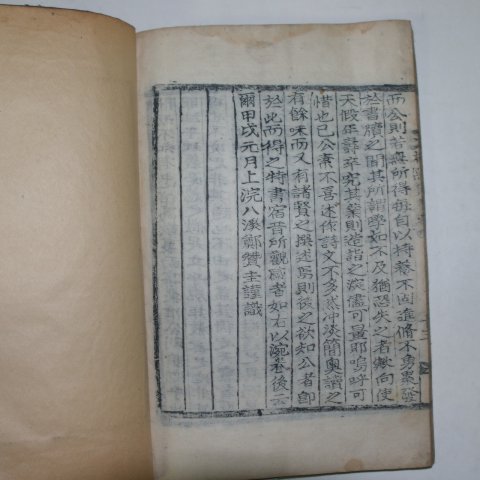 而公則若無所得每自以持養不固進修不勇褁發
於書牘之間其所謂學如不及猶恐失之者歟向使
天假年譜卒究其業則造詣之深儘可量耶嗚呼可
惜也已公素不喜述作詩文不多然冲淡簡奧讀之
有餘味而又有諸賢之撰述焉則後之欲知公者卽
於此而得之特書宿昔所觀感者如右以滂卷後云
爾甲戌元月上浣八溪鄭贊圭謹識